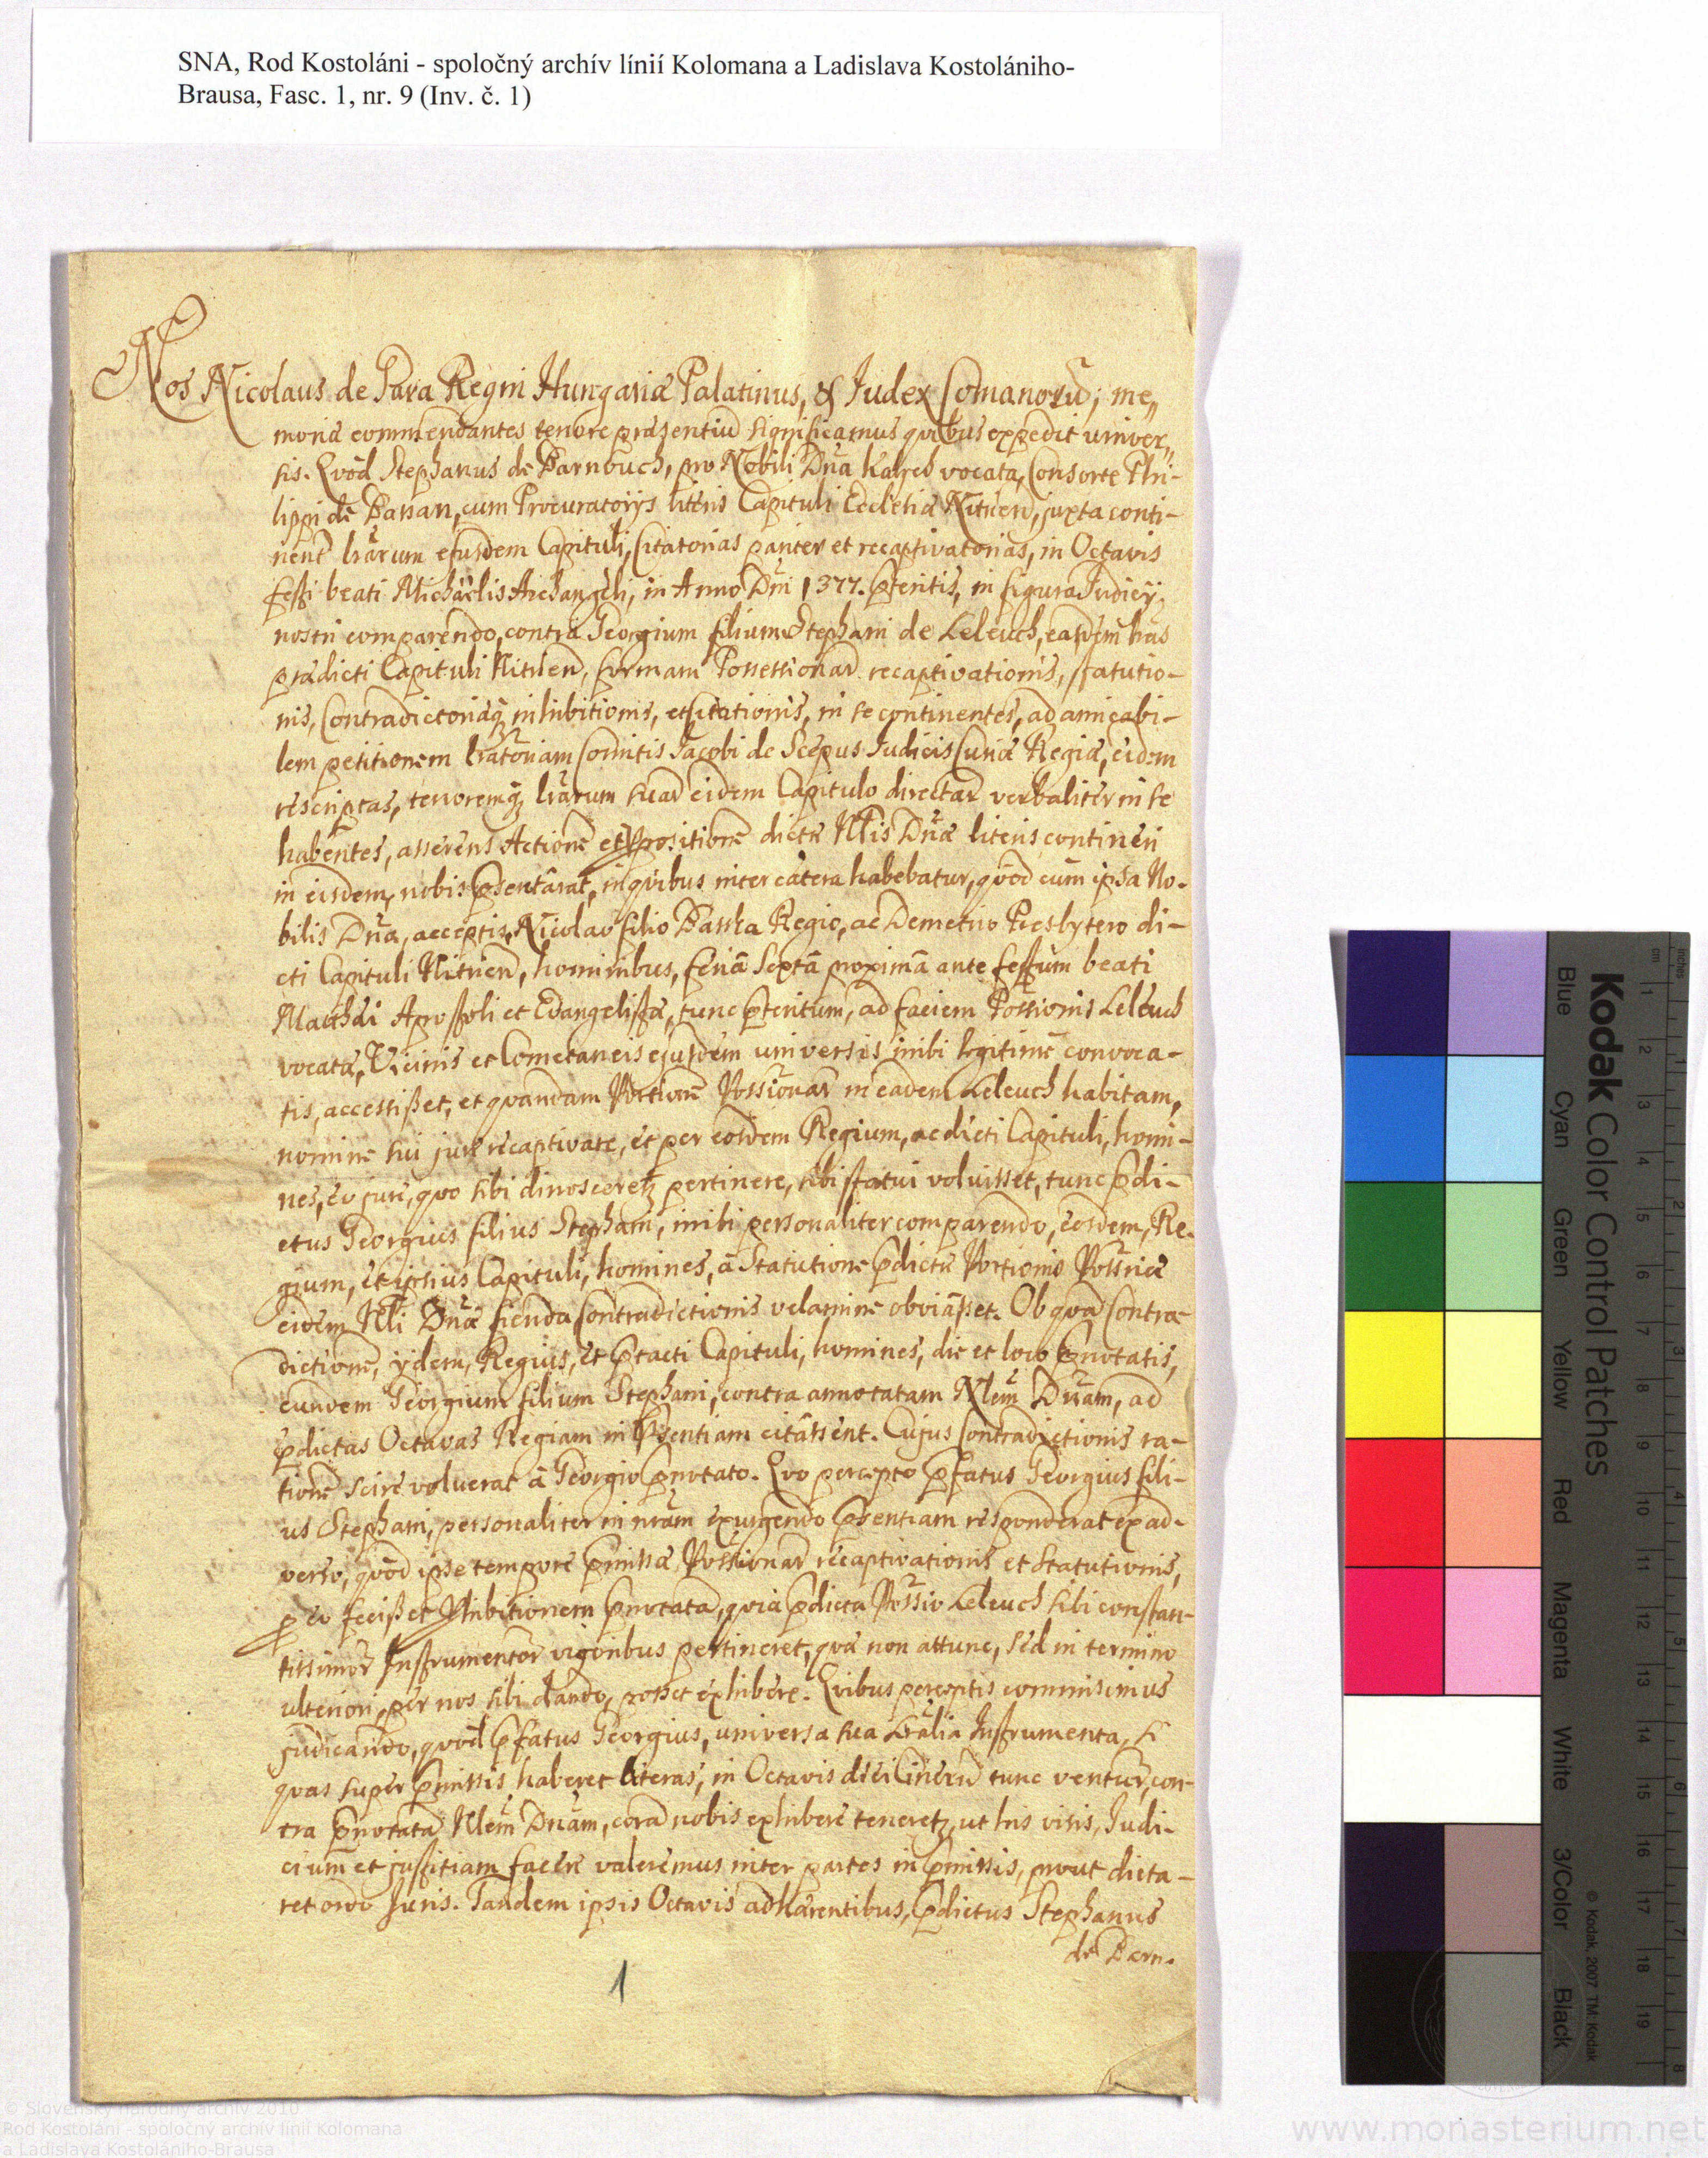 SNA, Rod Kostoláni - spoločný archív línií Kolomana a Ladislava Kostolániho-
Brausa, Fasc. 1, nr. 9 (Inv. č. 1)
Nos Nicolaus de Gara Regni Hungariæ Palatinus, & Judex Comanorū; me„
moriæ commendantes tenore præsentiū significamus quibus expedit univer„
sis. Qvòd Stephanus de Barnbuch, pro Nobili Dña Kalych vocata, Consorte Phi-
lippi de Bassan, cum Procuratorÿs literis Capituli Ecclesiæ Nitrieñ, juxta conti-
neñt lrãrum ejusdem Capituli, Citatorias pariter et recaptivatorias, in Octavis
festi beati Michaëlis Archangeli, in Anno Dñi 1377. pteritis, in figura Judicÿ
nostri comparendo, contra Georgium filium Stephani de Leleuch, easdem has
prædicti Capituli Nitrień, formam Possessionar̃ recaptivationis, statutio-
nis, Contradictoriæq; inhibitionis, et Citationis, in se continentes, ad amicabi-
lem petitionem lratoriam Comitis Jacobi de Scepus Judicis Curiæ Regiæ, eidem
rescriptas, tenoremq; lrãrum suar̃ eidem Capitulo directar̃ verbaliter in se
habentes, asserens Actionē et Propositionē dictæ Nlis Dñæ literis contineri
in eisdem, nobis psentârat, in qvibus inter cætera habebatur, qvòd cùm ipsa No-
bilis Dña, acceptis, Nicolao filio Basska Regio, ac Demetrio Presbytero di-
cti Capituli Nitrień, hominibus, feriâ Sextâ proximâ ante festum beati
Matthæi Apostoli et Evangelistæ, tunc pteritum, ad faciem Possionis Leleuch
vocatæ, Vicinis et Cometaneis ejusdem universis inibi legitimè convoca-
tis, accessisset, et qvandam Portionē Possionar̃ in eadem Leleuch habitam,
nomine sui juris recaptivare, et per eosdem Regium, ac dicti Capituli, homi-
nes, eo jure, quo sibi dinosceret; pertinere, sibi statui voluisset, tunc pdi-
ctus Georgius filius Stephani, inibi personaliter comparendo, eosdem, Re-
gium, et ipsius Capituli, homines, à Statutione pdictæ Portionis Possriæ
eidem Nli Dñæ fienda Contradictionis velamine obviâsset. Ob qvā Contra-
dictionē, ÿdem, Regius, et ptacti Capituli, homines, die et loco pnotatis,
eundem Georgium filium Stephani, contra annotatam Nlem Dñam, ad
pdictas Octavas Regiam in psentiam citâssent. Cujus Contradictionis ra-
tionē scire voluerat à Georgio pnotato. Qvo percepto pfatus Georgius fili-
us Stephani, personaliter in nrãm exurgendo psentiam responderat ex ad-
verso, qvòd ipse tempore pmissæ Possionar̃ recaptivationis et Statutionis,
p eo fecisset Inhibitionem pnotatā, qvia pdicta Possio Leleuch sibi constan-
tissimor̃ Instrumentor̃ vigoribus pertineret, qvæ non attunc, sed in termino
ulteriori, per nos sibi dando, posset exhibere. Qvibus perceptis commisimus
judicando, qvòd pfatus Georgius, universa sua Lrãlia Instrumenta, si
qvas super pmissis haberet literas, in Octavis diei Cinerū tunc ventur̃, con-
tra pnotatā Nlem Dñam, corā nobis exhibere teneret;, ut his visis, Judi-
cium et justitiam facere valeremus inter partes in pmissis, prout dicta-
ret ordo Juris. Tandem ipsis Octavis adhærentibus, pdictus Stephanus
de Barn-
1
Kodak Color Control Patches
Blue
Cyan
Green
Yellow
Red
Magenta
White
3/Color
Black
© Kodak, 2007 TM: Kodak
inches
cm
1
2
3
4
5
6
7
8
9
10
11
12
13
14
15
16
17
18
19
1
2
3
4
5
6
7
8
© Slovenský národný archív 2010
Rod Kostoláni - spoločný archív línií Kolomana
a Ladislava Kostolániho-Brausa
www.monasterium.net